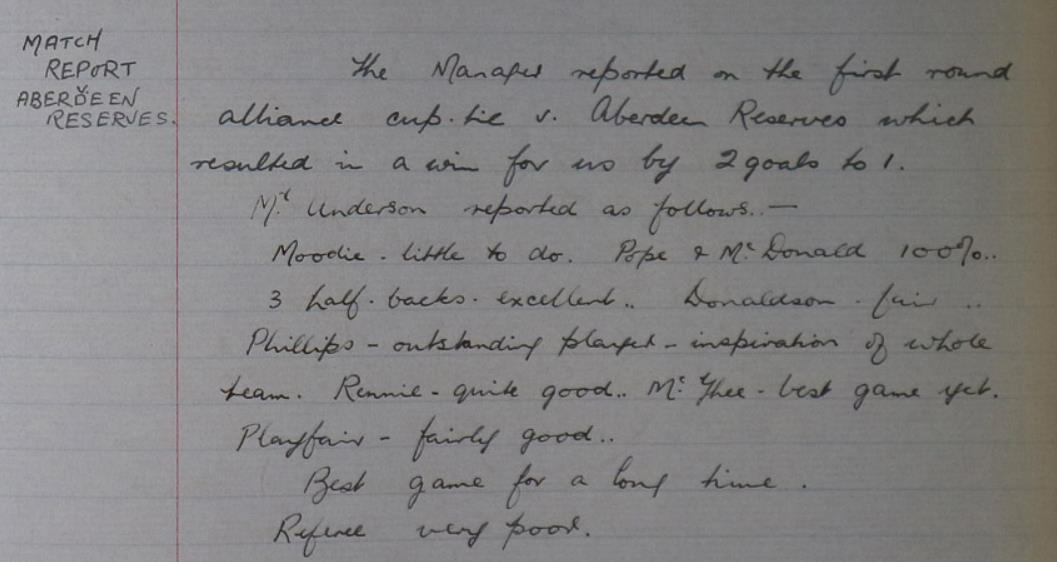 MATCH
REPORT
ABERDEEN
RESERVES.
The Manager reported on the first round
alliance cup-tie v. Aberdeen Reserves which
resulted in a win for us by 2 goals to 1.
Mr. Underson reported as follows..—
Moodie - little to do. Pope & Mc.Donald 100%..
3 half-backs - excellent.. Donaldson - fair ..
Phillips - outstanding player - inspiration of whole
team. Rennie - quite good.. Mc.Ghee - best game yet.
Playfair - fairly good..
Best game for a long time.
Referee very poor.